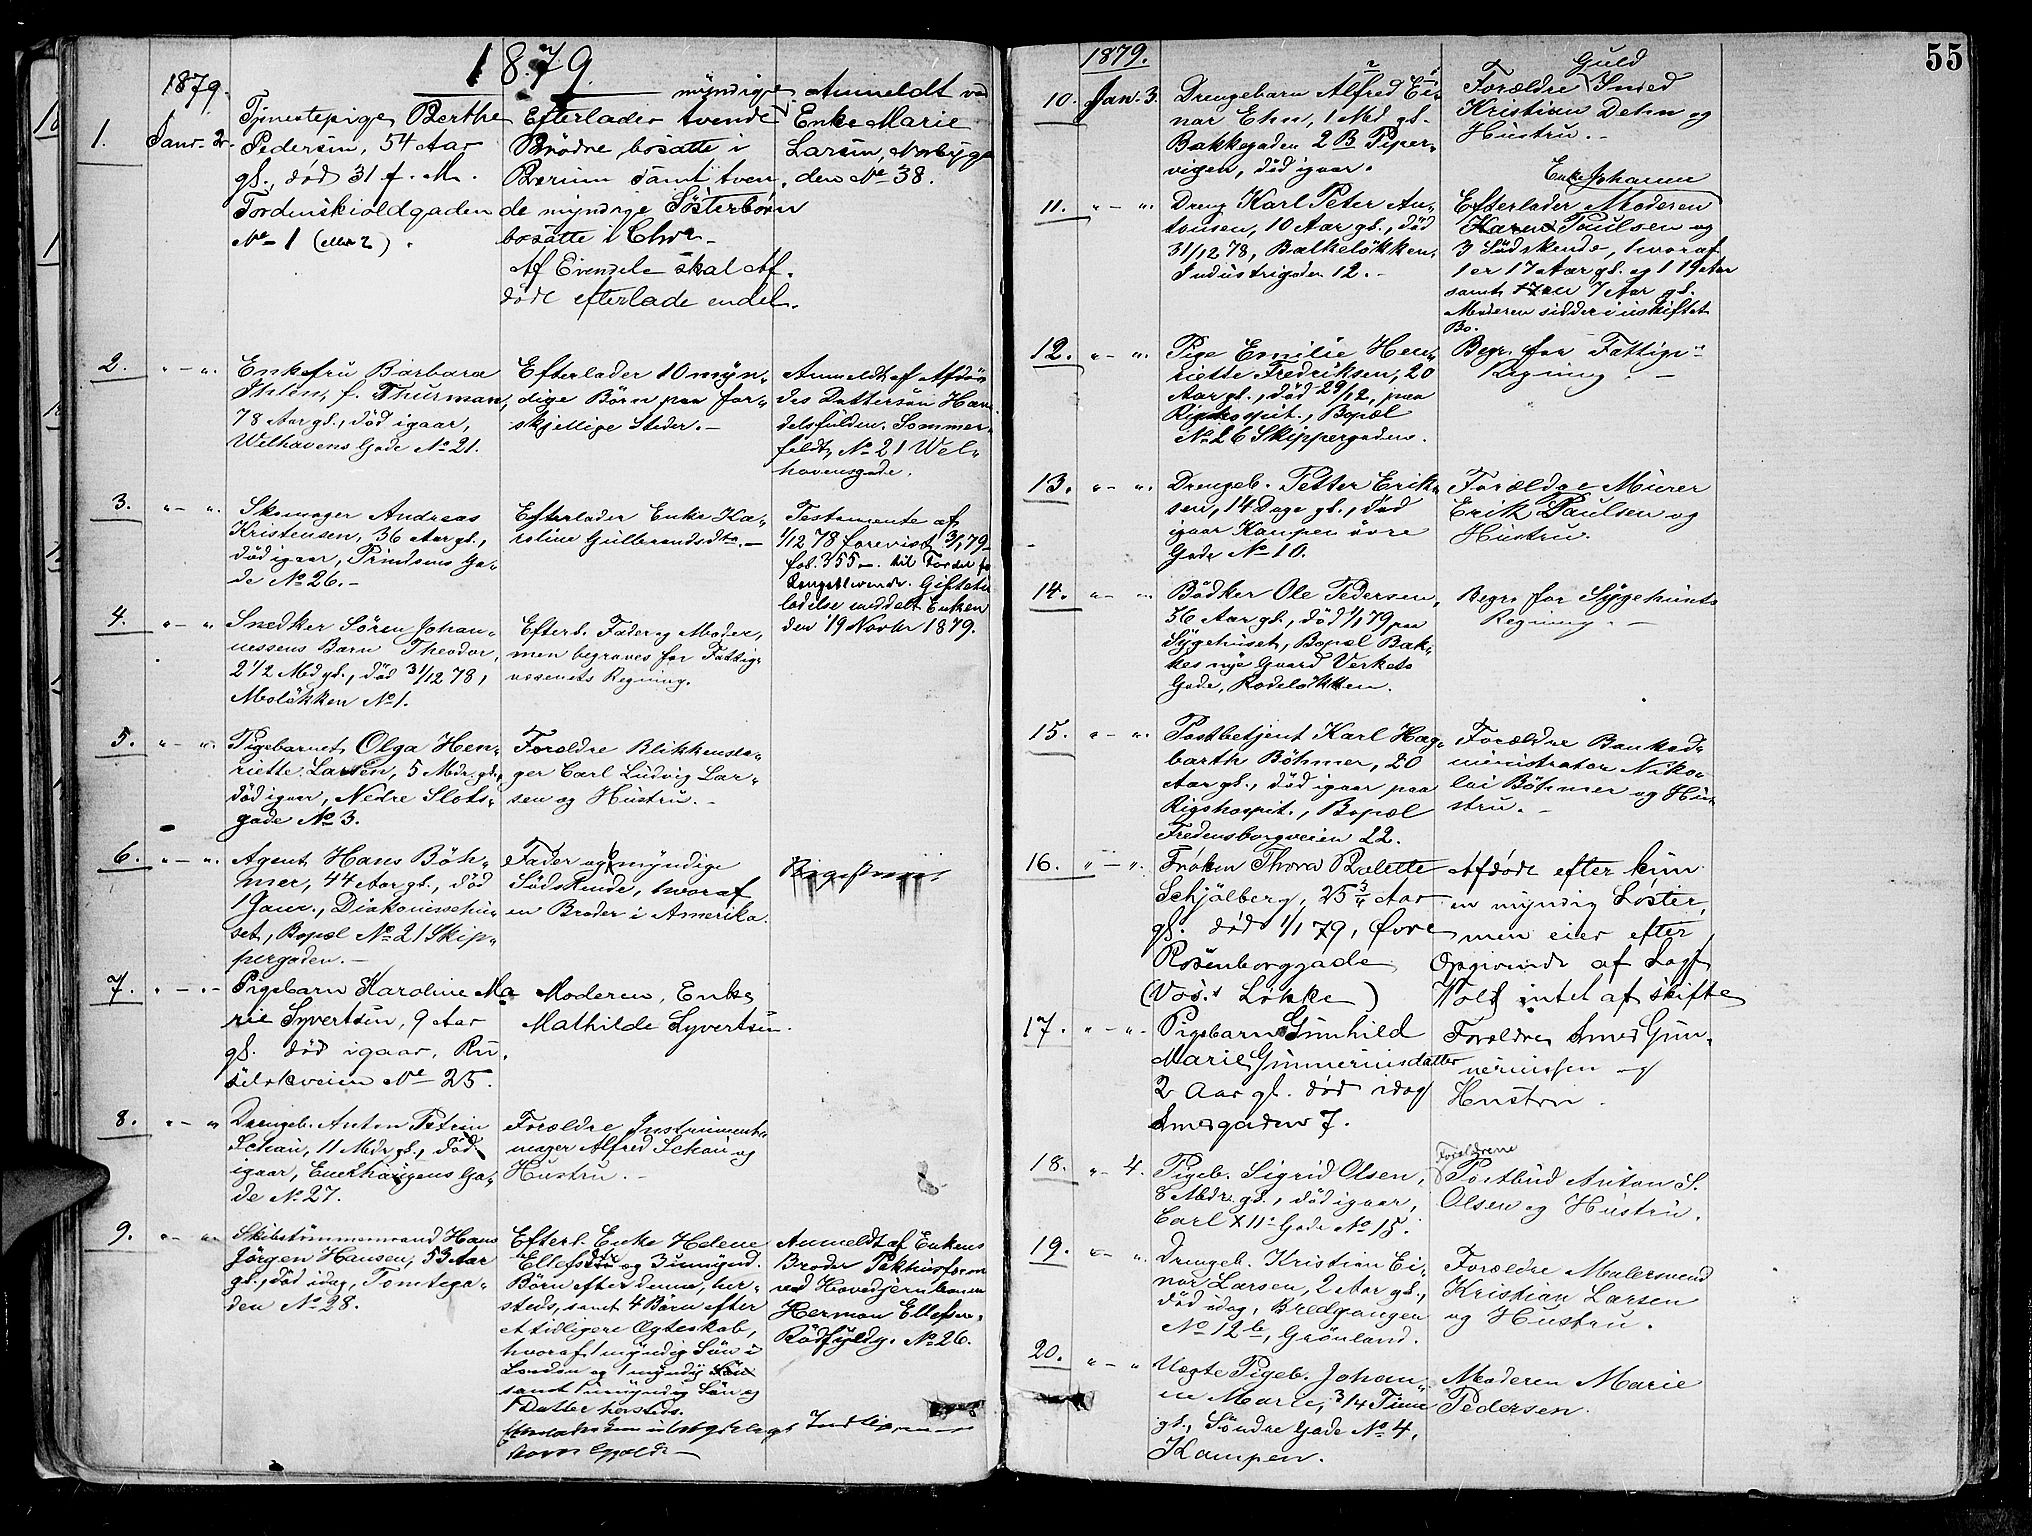 1879.
1879.
1.
Janr. 2.
Tjenestepige Berthe
Pedersen, 54 Aar
gl., död 31 f. M.
Tordenskioldgaden
No 1 (eller 2).
myndige
Efterlader tvende
Brödre bosatte i
Bærum samt tven-
de myndige Søsterbørn
bosatte i Chra
Af Eiendele skal Af-
døde efterlade endel.
Anmeldt ved
Enke Marie
Larsen, Norbyga-
den No 38.
2.
" - "
Enkefru Barbara
Ihlen, f. Thurman,
78 Aar gl., död igaar,
Welhavens Gade No 21.
Efterlader 10 myn-
dige Börn paa for-
skjellige Steder.-
Anmeldt af Afdö-
des Dattersön Han-
delsfuldm. Sommer-
feldt, No 21 Wel-
havensgade.
3.
" - "
Skomager Andreas
Kristensen, 36 Aar gl.,
död igaar, Prindsens Ga-
de No 26.-
Efterlader Enke Ka-
roline Gulbrandsdtr.-
Testamente af
1/12 78 forevist 3/1 79
fol. 355
Giftetil-
ladelse meddelt Enken
den 19 Novbr 1879.
4.
" - "
Snedker Sören Johan-
nessens Barn Theodor,
2 1/2 Md gl., död 31/12 78,
Meslökken No 1.
Efterl. Fader og Moder,
men begraves for Fattig-
væsenets Regning.
5.
" - "
Pigebarnet Olga Hen-
riette Larsen, 5 Mdr gl.,
död igaar, Nedre Slots-
gade No 3.
Forældre Blikkensla-
ger Carl Ludvig Lar-
sen og Hustru.-
6.
" - "
Agent Hans Böh-
mer, 44 Aar gl., död
1 Janr., Diakonissehu-
set, Bopæl No 21 Skip-
pergaden.-
Fader og 6 myndige
Södskende, hvoraf
en Broder i Amerika.
7.
" - "
Pigebarn Karoline Ma-
rie Syvertsen, 9 Aar
gl. död igaar, Ru-
selökveien No 25.
Moderen, Enke
Mathilde Syvertsen.
8.
" - "
Drengeb. Anton Petrin
Schau, 11 Mdr gl., död
igaar, Enerhaugens Ga-
de No 27.
Forældre Instrument-
mager Alfred Schau og
Hustru.-
9.
" - "
Skibstömmermand Hans
Jörgen Hansen, 53 Aar
gl., död idag, Tomtega-
den No 28.
Efterl. Enke Helene
Ellefsdtr og 3 umynd.
Börn efter denne, her-
steds, samt 4 Börn efter
et tidligere Ægteskab,
hvoraf 1 myndig Sön i
London og 1 myndig Sön
samt 1 umyndig Sön og
1 Datter hersteds.
Anmeldt af Enkens
Broder Pakhusform.
ved Hovedjernbanen
Herman Ellefsen,
Rödfyldg. No 26.
55
1879.
10.
Jan. 3.
Drengebarn Alfred Ei-
nar Ehn, 1 Md gl.
Bakkegaden 2 B Piper-
vigen, död igaar.
Guld
Forældre Smed
Kristian Dehn og
Hustru.-
11.
" - "
Dreng Karl Peter An-
tonsen, 10 Aar gl., död
31/12 78, Balkeløkken,
Industrigaden 12.-
Enke Johanne
Efterlader Moderen
Karen Paulsen og
3 Södskende, hvoraf
1 er 17 Aar gl. og 1 19 Aar
samt 1 7 Aar gl.
Moderen sidder i uskiftet
Bo.
12.
" - "
Pige Emilie Hen-
riette Fredriksen, 20
Aar gl., död 29/12, paa
Rigshospit., Bopæl
No 26 Skippergaden.
Begr. for Fattigv.
Regning.-
13.
" - "
Drengeb. Petter Erik-
sen, 14 Dage gl., död
igaar Kampen övre
Gade No 10.
Forældre Murer
Erik Paulsen og
Hustru.
14.
" - "
Bödker Ole Pedersen,
36 Aar gl., död 1/1 79 paa
Sygehuset, Bopæl Bak-
kes nye Gaard Verkets
Gade, Rodelökken.
Begr. for Sygehusets
Regning.-
15.
" - "
Postbetjent Karl Hag-
barth Böhmer, 20
Aar gl., död igaar paa
Rigshospit., Bopæl
Fredensborgveien 22.
Forældre Bankad-
ministrator Niko-
lai Böhmer og Hu-
stru.-
16.
" - "
Fröken Thora Bolette
Schjölberg, 25 3/4 Aar
gl. död 1/1 79, Øvre
Rosenborggade
(Vos.s Løkke)
Afdöde efterl. kun
en myndig Søster,
men eier efter
Opgivende af Sagf.
Wolf intet af skifte
17.
" - "
Pigebarn Gunhild
Marie Gunneriusdatter
2 Aar gl. död idag
Smedgaden 7.
Forældre Smed Gun-
neriussen og
Hustru.
18.
" 4.
Pigeb. Sigrid Olsen,
8 Mdr gl., död igaar,
Carl XII's Gade No 15.
Forældrene
Postbud Anton S.
Olsen og Hustru.
19.
" - "
Drengeb. Kristian Ei-
nar Larsen, 2 Aar gl.,
död idag, Bredgangen
No 12b, Grönland.
Forældre Malersvend
Kristian Larsen
og Hustru.
20.
" - "
Uægte Pigeb. Johan-
ne Marie, 3/4 Time
gl., Söndre Gade No 4,
Kampen.
Moderen Marie
Pedersen.